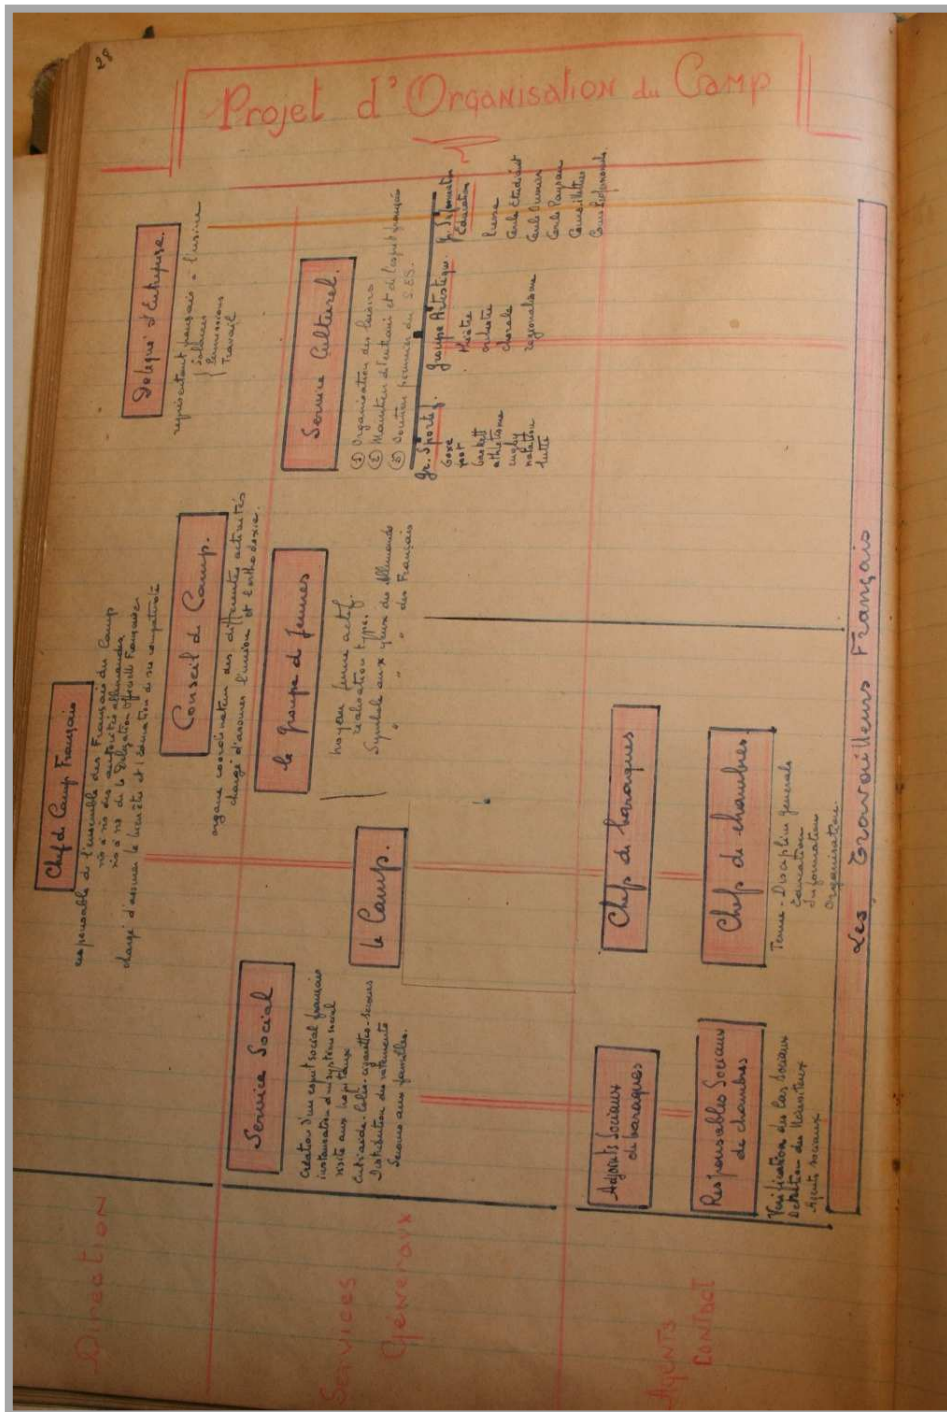 28
Projet d'Organisation du Camp
Direction
Chef d Camp Français
responsable de l'ensemble des Français du Camp
vis à vis des autorités allemandes
vis à vis de la Délégation Officielle Française.
chargé d'assurer le bien être et l'éducation de ses compatriotes
Conseil d Camp.
organe coordinateur des différentes activités
chargé d'assurer l'union et l'orthodoxie.
Délégué d'Entreprise.
représentant français à l'usine
salaires
permissions
Travail
Services
Généraux
Service Social
Création d'un esprit social français
instauration d'un système social
visite aux hopitaux
Entr'aide. Colis - cigarettes - secours
Distribution des vetements
Secours aux familles.
le Camp.
le groupe d jeunes
noyau jeune actif.
réalisation type.
Symbole aux yeux des Allemands
" " " des Français
Service Culturel.
① Organisation des loisirs
② Maintien de l'entrain et de l'esprit français
③ Soutien premier du
Gr. Sportif.
boxe
foot
baskett
athlétisme
rugby
natation
lutte
Groupe Artistique.
théâtre
orchestre
chorale
regionalisme
Gr. Information
Education
Cercle Etudiant
Cercle Ouvrier
Cercle Paysan
Cours illettrés
Cours d'allemands.
Agents
Contact
Adjoints Sociaux
de baraques
Responsables Sociaux
de chambres
Vérification des Cas Sociaux
Détection des Nécessiteux
Agents sociaux
Chefs de baraques
Chefs de chambres.
Tenue - Discipline générale
Education
Information
Organisation.
Les Travailleurs Français